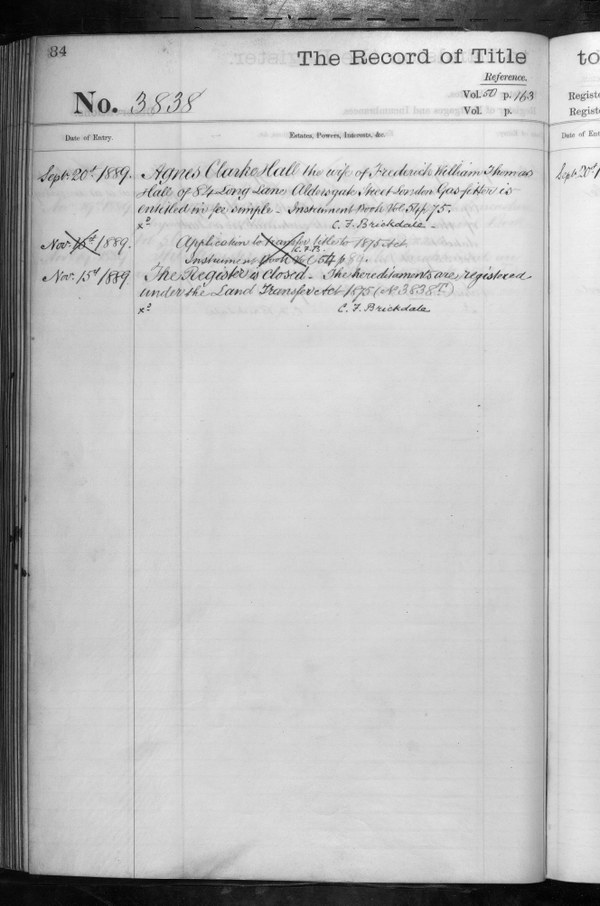 84
The Record of Title
Reference.
Vol. 50 p. 163
No. 3838
Vol. p.
Date of Entry.
Estates, Powers, Interests, &c.
Sept. 20th 1889. Agnes Clarke Hall the wife of Frederick William Thomas
Hall of 84 Long Lane Aldersgate Street London Gasfitter is
entitled in fee simple – Instrument Book Vol. 54 p 75.
C. F. Brickdale –
Nov. 1889. Application to transfer title to 1875 Act
C.F.B.
Instrument Book Vol. 54 p 89.
Nov. 15th 1889 The Register is Closed – The hereditaments are registered
under the Land Transfer Act 1875 (No 3838T)
C. F. Brickdale
to
Registe
Registe
Date of Ent
Sept. 20th 1